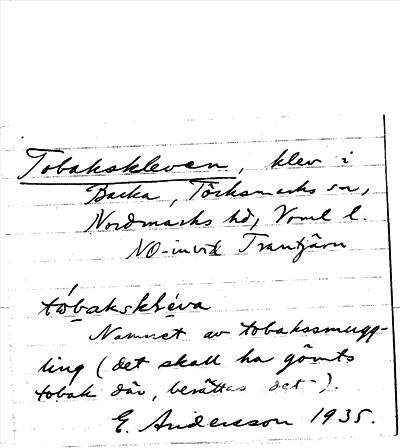 Tobakskleven, klev i
Backa, Töcksmarks sn,
Nordmarks hd, Vrml l.
NO-invid Trantjärn
tóbaksklèva
Namnet av tobakssmugg-
ling (det skall ha gömts
tobak där, berättas det).
E. Andersson 1935.